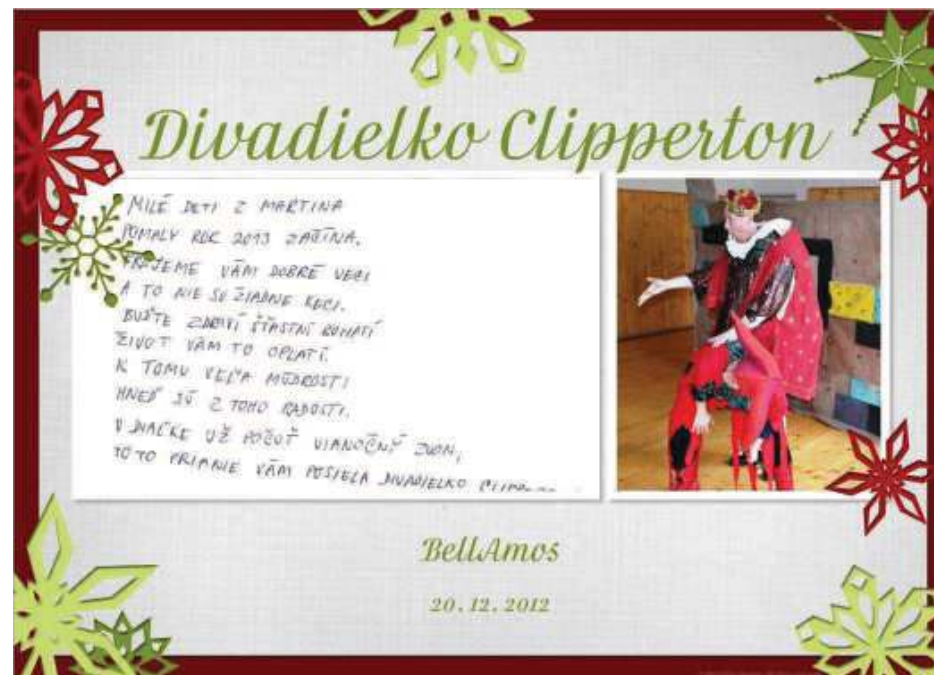 Divadielko Clipperton
MILÉ DETI Z MARTINA
POMALY ROK 2013 ZAČÍNA.
PRAJEME VÁM DOBRÉ VECI
A TO NIE SÚ ŽIADNE KECI.
BUĎTE ZDRAVÍ ŠŤASTNÍ BOHATÍ
ŽIVOT VÁM TO OPLATÍ.
K TOMU VEĽA MÚDROSTI
HNEĎ SÚ Z TOHO RADOSTI.
V DIAĽKE UŽ POČUŤ VIANOČNÝ ZVON,
TOTO PRIANIE VÁM POSIELA DIVADIELKO
BellAmos
20.12.2012